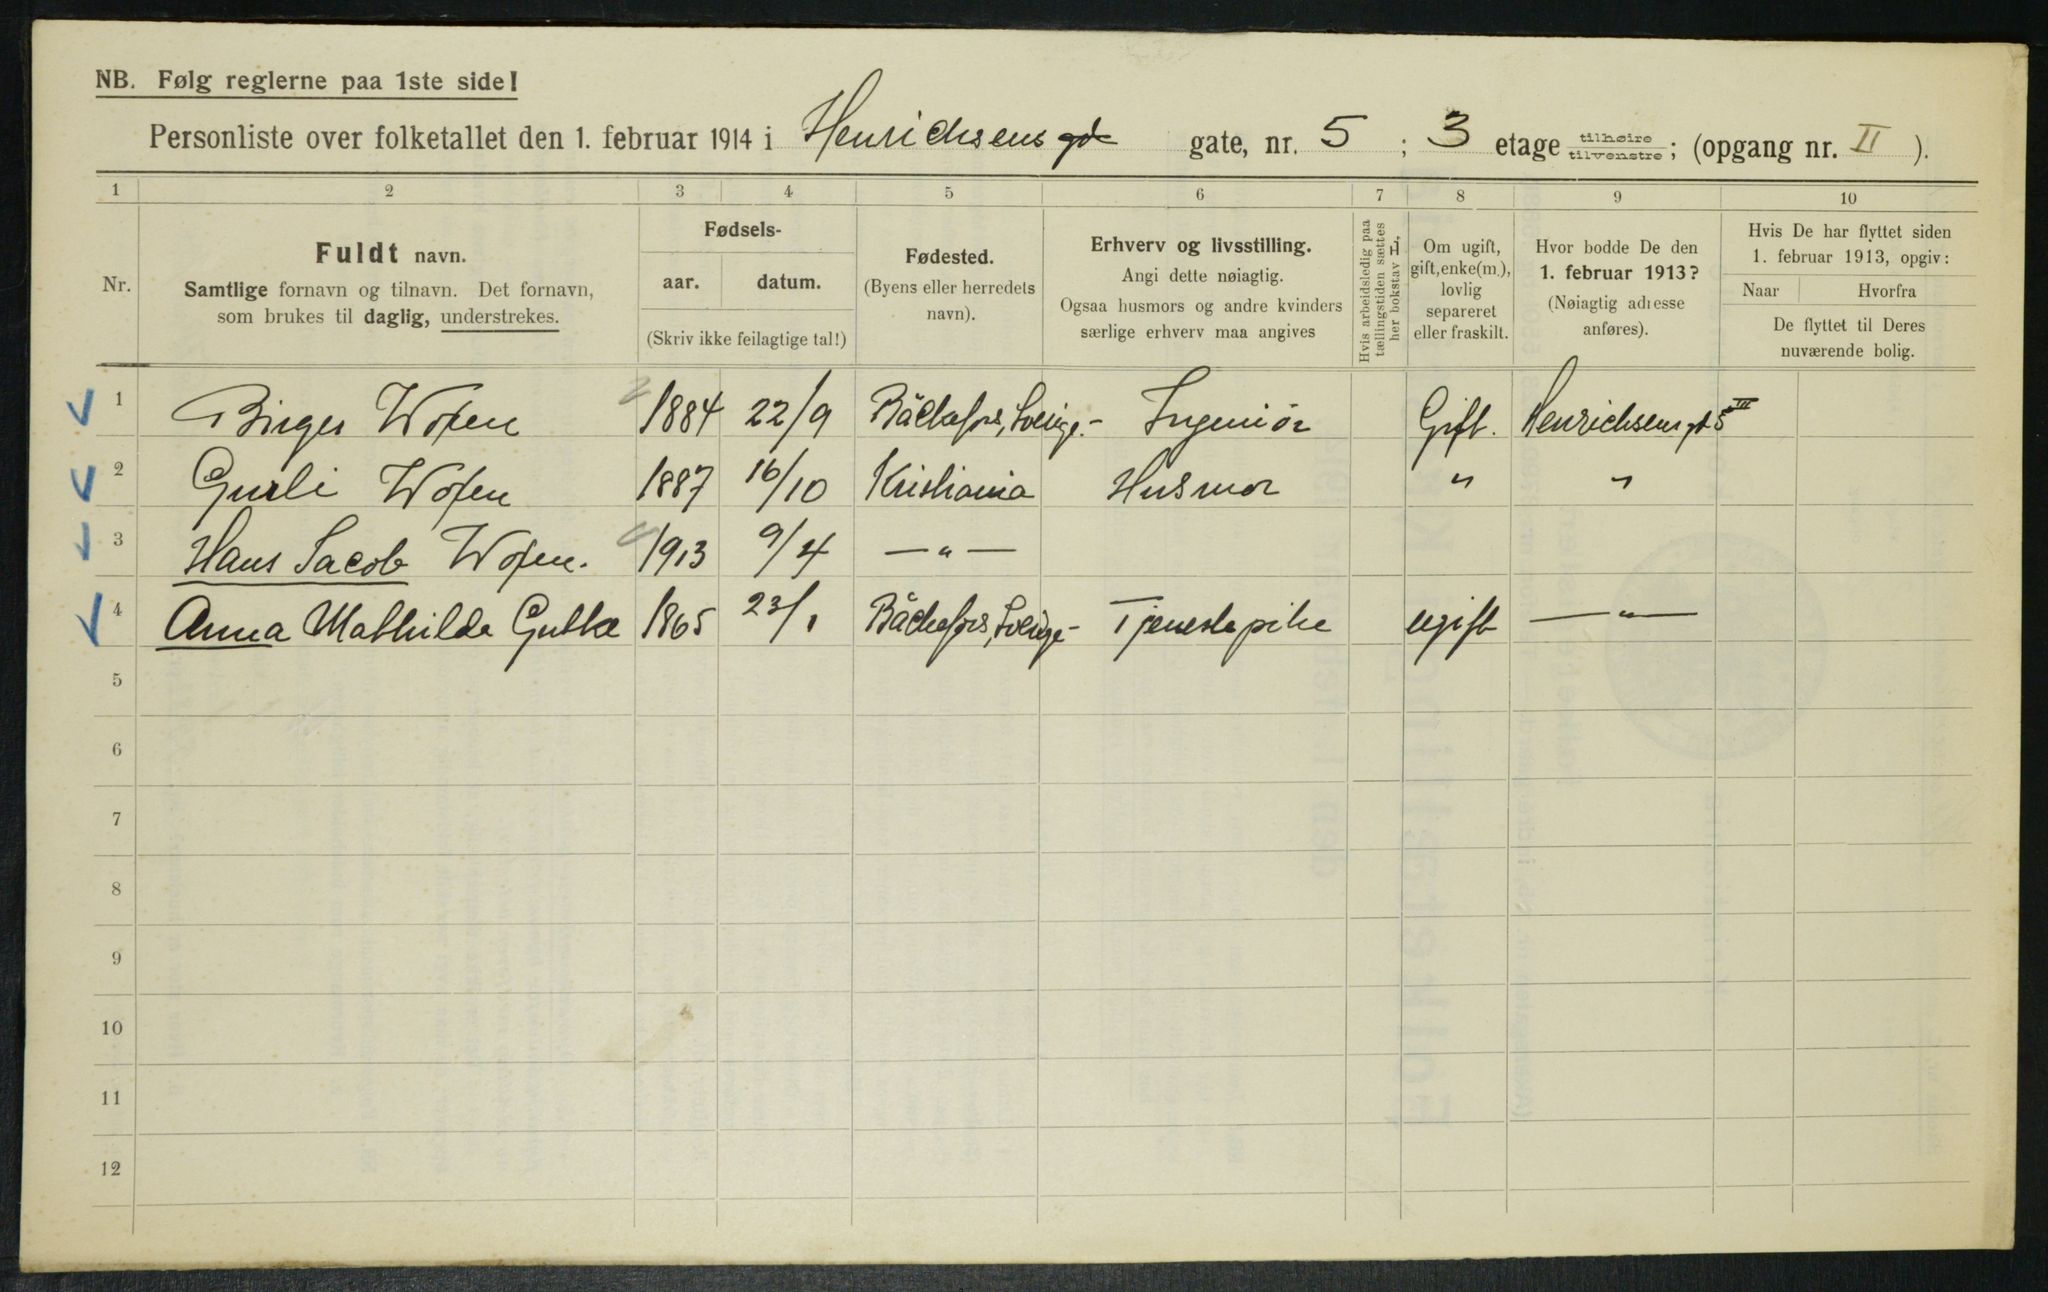 NB. Følg reglerne paa 1ste side!
Personliste over folketallet den 1. februar 1914 i Henrichsens gt gate, nr. 5 ; 3 etage tilhøire tilvenstre ; (opgang nr. II ).
1 2 3 4 5 6 7 8 9 10
Nr.
Fuldt navn.
Samtlige fornavn og tilnavn. Det fornavn,
som brukes til daglig, understrekes.
Fødsels-
aar. datum.
(Skriv ikke feilagtige tal!)
Fødested.
(Byens eller herredets
navn).
Erhverv og livsstilling.
Angi dette nøiagtig.
Ogsaa husmors og andre kvinders
særlige erhverv maa angives
Hvis arbeidsledig paa
tællingstiden sættes
her bokstav L.
Om ugift,
gift, enke(m.),
lovlig
separeret
eller fraskilt.
Hvor bodde De den
1. februar 1913?
(Nøiagtig adresse
anføres).
Hvis De har flyttet siden
1. februar 1913, opgiv:
Naar Hvorfra
De flyttet til Deres
nuværende bolig.
1 Birger Woxen 1884 22/9 Bäckefors, Sverige.- Ingeniör Gift. Henrichsens gt 5 III
2 Gurli Woxen 1887 16/10 Kristiania Husmor " "
3 Hans Jacob Woxen. 1913 9/4 — " —
4 Anna Mathilda 1865 23/1 Bäckefors, Sverige- Tjenestepike ugift — " —
5
6
7
8
9
10
11
12